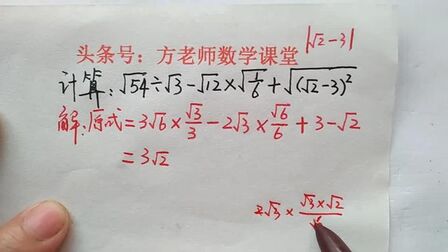 |√2-3|
头条号：方老师数学课堂
计算：√54÷√3-√12×√(1/6)+√((√2-3)²)
解：原式=3√6×√3/3-2√3×√6/6+3-√2
=3√2
2√3×(√3×√2)/